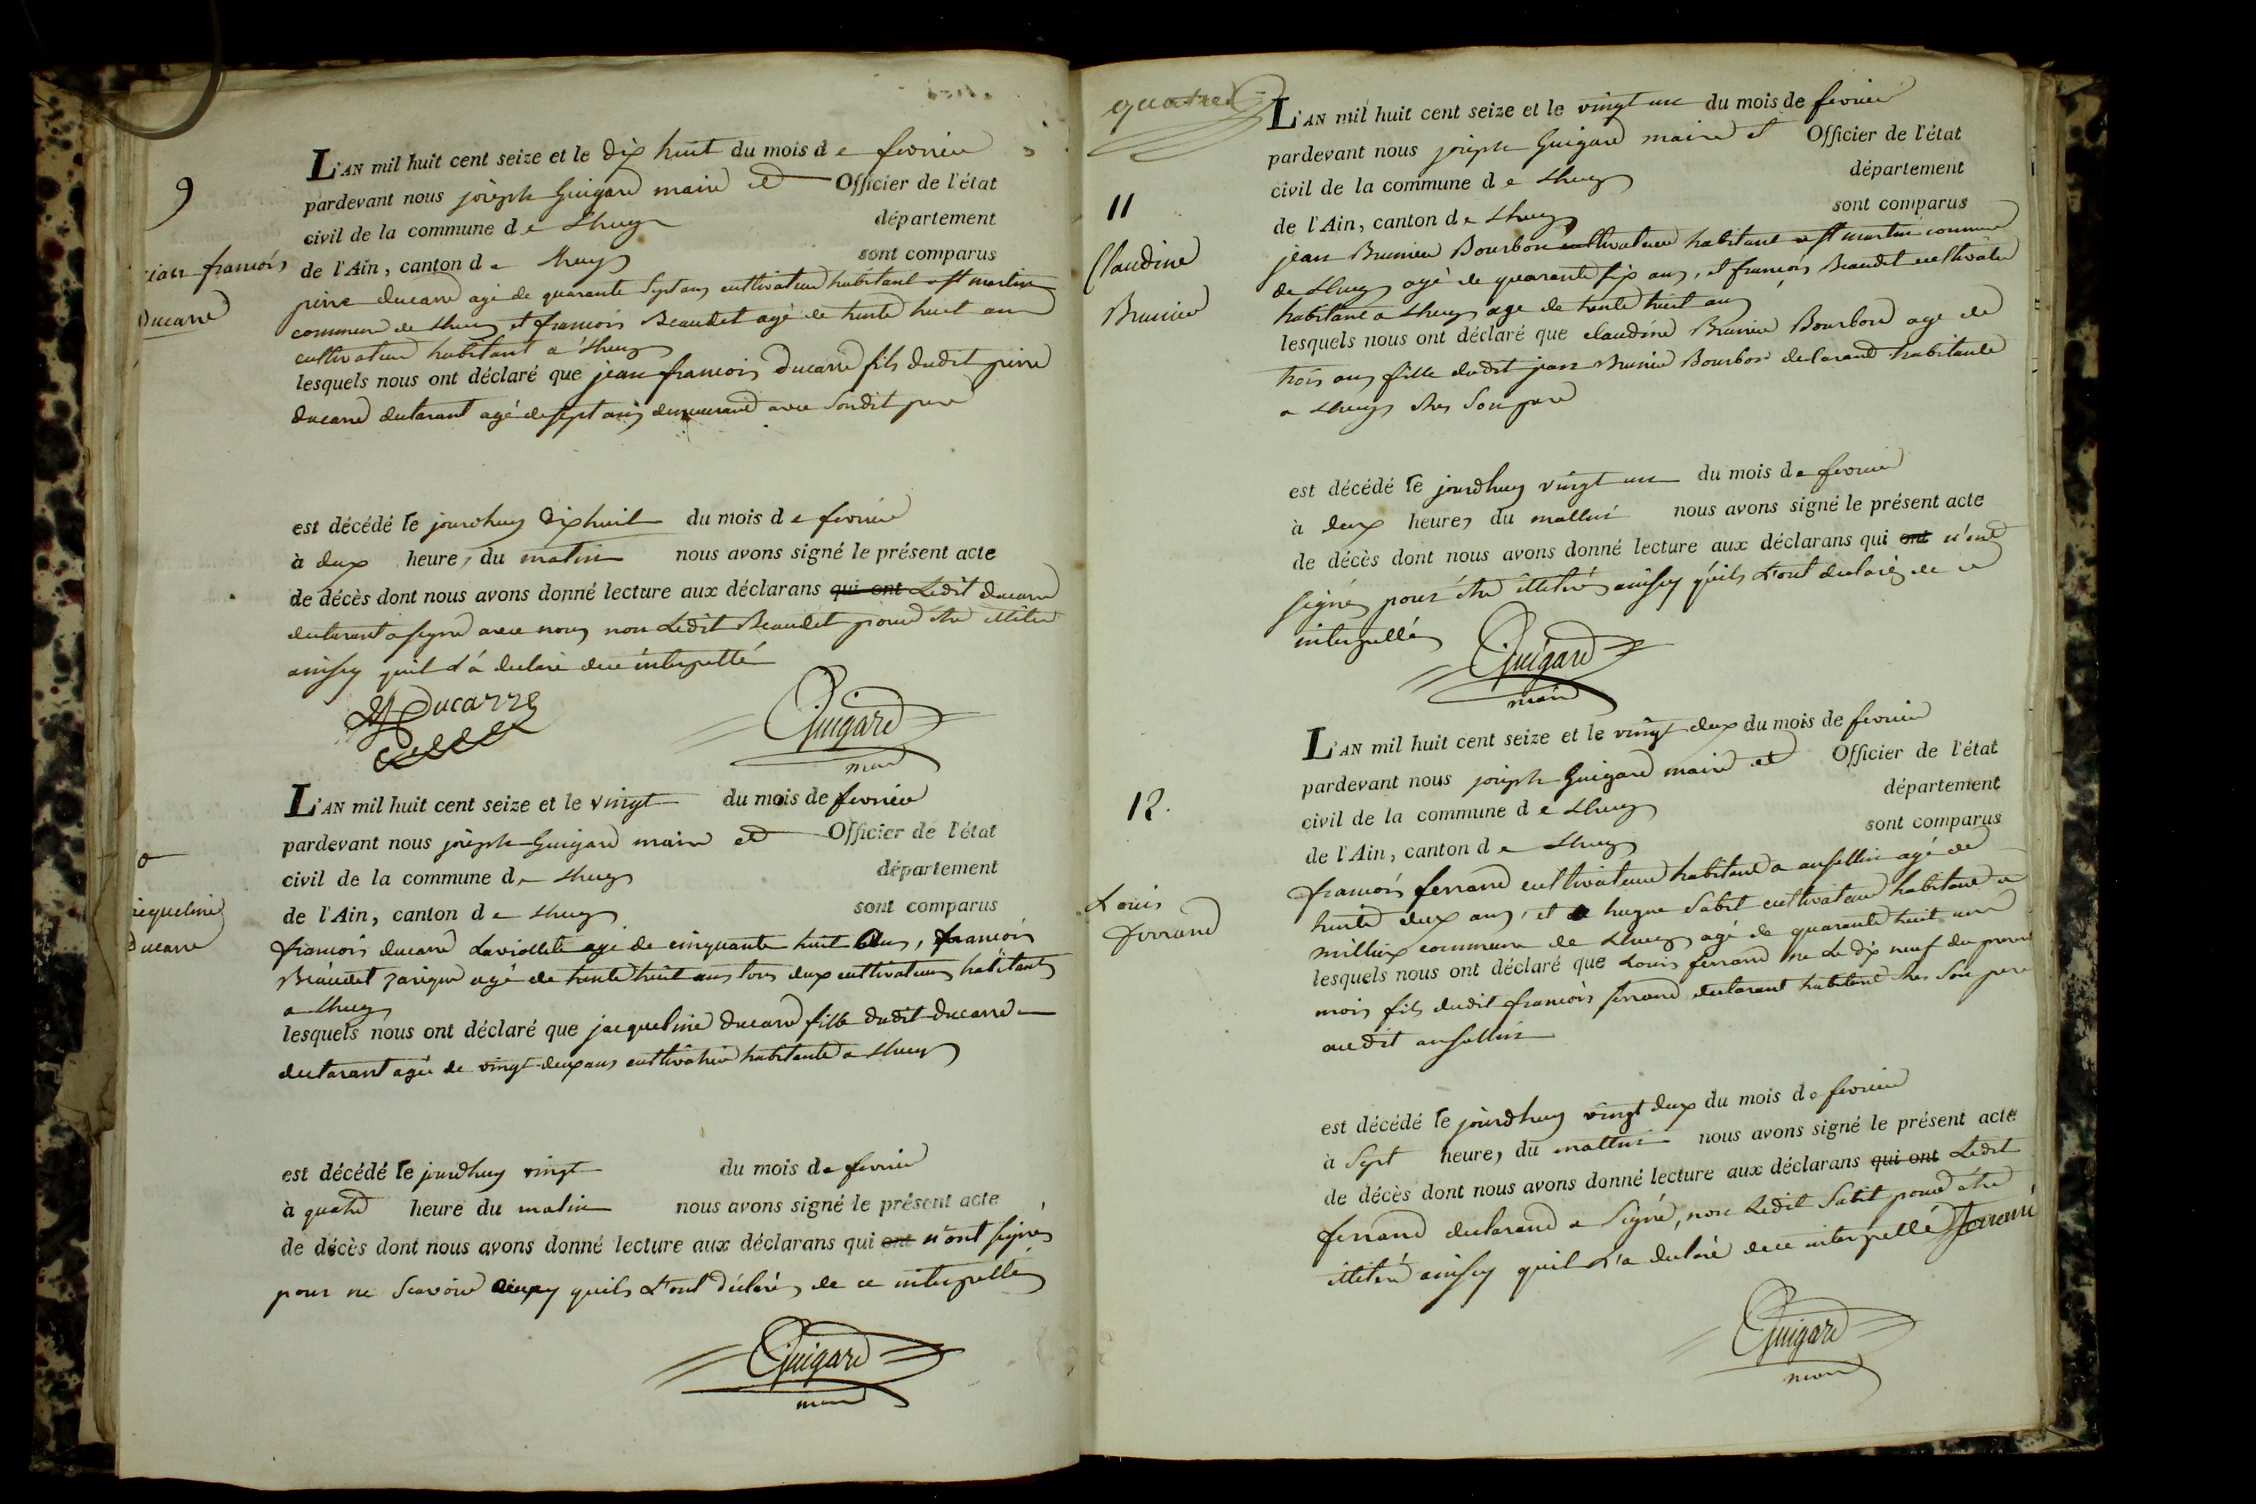 9
jean francois
Ducarre
L'AN mil huit cent seize et le dix huit du mois de fevrier
pardevant nous joseph Guigard maire et Officier de l'état
civil de la commune de Lhuys département
de l'Ain, canton de Lhuys sont comparus
pierre ducarre agé de quarante sept ans cultivateur habitant a st martin
commune de Lhuys et francois Beaudet agé de trente huit ans
cultivateur habitant a Lhuys
lesquels nous ont déclaré que jean francois Ducarre fils dudit pierre
ducarre declarant agé de sept ans demeurant avec sondit pere
est décédé le jourdhuy dix huit du mois de fevrier
à deux heures du matin nous avons signé le présent acte
de décès dont nous avons donné lecture aux déclarans qui ont Ledit ducarre
declarant a signé avec nous non Ledit Beaudet pour etre illitéré
ainsy quil l'a declaré de ce interpellé
Ducarre
Guigard
maire
10
jacqueline
Ducarre
L'AN mil huit cent seize et le vingt du mois de fevrier
pardevant nous joseph Guigard maire et Officier de l'état
civil de la commune de Lhuys département
de l'Ain, canton de Lhuys sont comparus
francois ducarre Laviollete agé de cinquante huit ans, francois
Beaudet agé de trente huit ans tous deux cultivateurs habitants
a Lhuys
lesquels nous ont déclaré que jacqueline Ducarre fille dudit Ducarre
declarant agée de vingt deux ans cultivatrice habitante a Lhuys
est décédé le jourdhuy vingt du mois de fevrier
à quatre heure du matin nous avons signé le présent acte
de décès dont nous avons donné lecture aux déclarans qui ont n'ont signés
pour ne scavoir ainsy quils L'ont déclarés de ce interpellés
Guigard
maire
quatre
11
Claudine
Brunier
L'AN mil huit cent seize et le vingt un du mois de fevrier
pardevant nous joseph Guigard maire et Officier de l'état
civil de la commune de Lhuys département
de l'Ain, canton de Lhuys sont comparus
jean Brunier Bourbon cultivateur habitant a st martin commune
de Lhuys agé de quarante six ans, et francois Beaudet cultivateur
habitant a Lhuys age de trente huit ans
lesquels nous ont déclaré que claudine Brunier Bourbon age de
trois ans fille dudit jean Brunier Bourbon declarant habitante
a Lhuys ches son pere
est décédé le jourdhuy vingt un du mois de fevrier
à deux heures du mattin nous avons signé le présent acte
de décès dont nous avons donné lecture aux déclarans qui ont n'ont
signés pour étre illitérés ainsy quils L'ont declarés de ce
interpellés
Guigard
maire
12.
Louis
ferrand
L'AN mil huit cent seize et le vingt deux du mois de fevrier
pardevant nous joseph Guigard maire et Officier de l'état
civil de la commune de Lhuys département
de l'Ain, canton de Lhuys sont comparus
francois ferrand cultivateur habitant a ansellin agé de
trente deux ans, et hugue Sabit cultivateur habitant a
millieux commune de Lhuys agé de quarante huit ans
lesquels nous ont déclaré que Louis ferrand né Le dix neuf du present
mois fils dudit francois ferrand declarant habitant ches son pere
au dit ansellin
est décédé le jourdhuy vingt deux du mois de fevrier
à Sept heures du mattin nous avons signé le présent acte
de décès dont nous avons donné lecture aux déclarans qui ont Ledit
ferrand declarand a signé, non Ledit Sabit pour étre
illitéré ainsy quil l'a declaré de ce interpellé
Guigard
maire